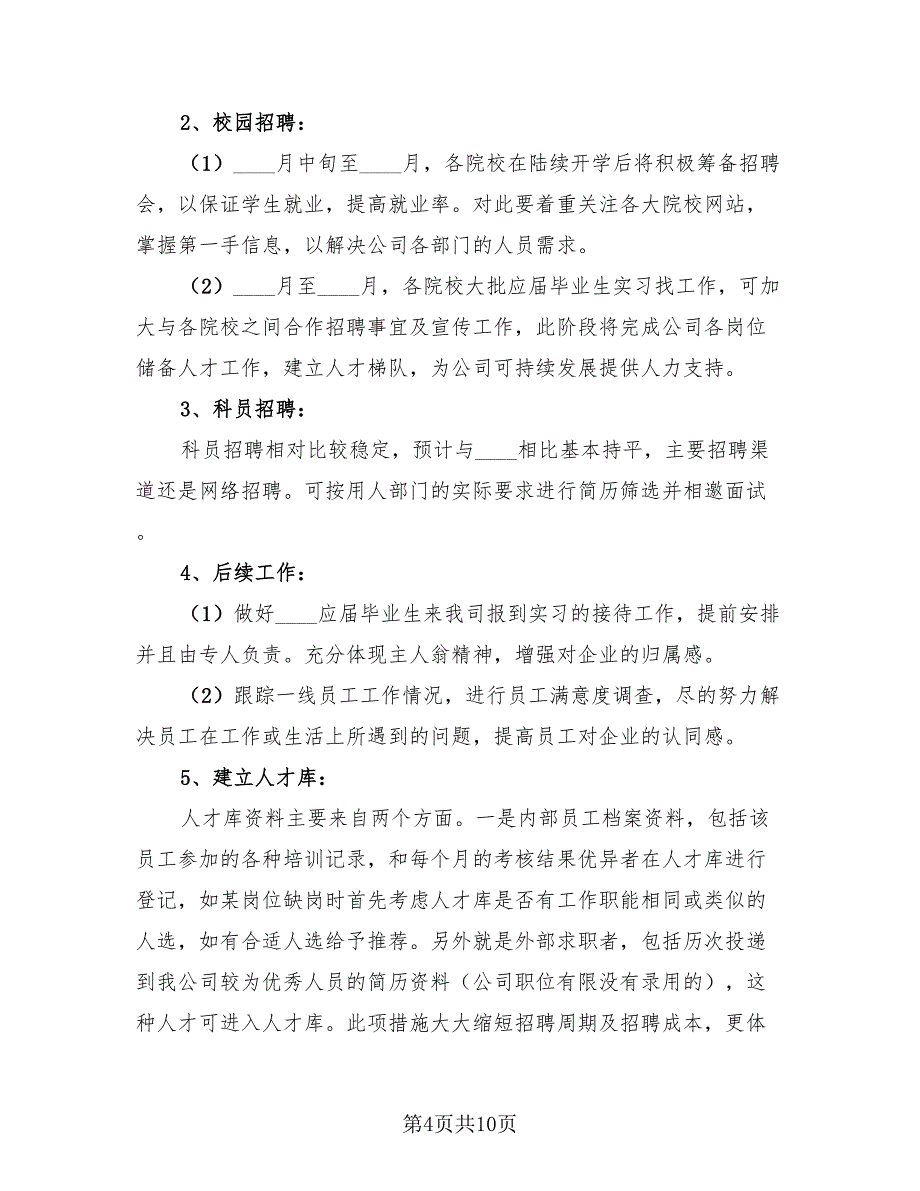 2、校园招聘：
（1）____月中旬至____月，各院校在陆续开学后将积极筹备招聘
会，以保证学生就业，提高就业率。对此要着重关注各大院校网站，
掌握第一手信息，以解决公司各部门的人员需求。
（2）____月至____月，各院校大批应届毕业生实习找工作，可加
大与各院校之间合作招聘事宜及宣传工作，此阶段将完成公司各岗位
储备人才工作，建立人才梯队，为公司可持续发展提供人力支持。
3、科员招聘：
科员招聘相对比较稳定，预计与____相比基本持平，主要招聘渠
道还是网络招聘。可按用人部门的实际要求进行简历筛选并相邀面试
。
4、后续工作：
（1）做好____应届毕业生来我司报到实习的接待工作，提前安排
并且由专人负责。充分体现主人翁精神，增强对企业的归属感。
（2）跟踪一线员工工作情况，进行员工满意度调查，尽的努力解
决员工在工作或生活上所遇到的问题，提高员工对企业的认同感。
5、建立人才库：
人才库资料主要来自两个方面。一是内部员工档案资料，包括该
员工参加的各种培训记录，和每个月的考核结果优异者在人才库进行
登记，如某岗位缺岗时首先考虑人才库是否有工作职能相同或类似的
人选，如有合适人选给予推荐。另外就是外部求职者，包括历次投递
到我公司较为优秀人员的简历资料（公司职位有限没有录用的），这
种人才可进入人才库。此项措施大大缩短招聘周期及招聘成本，更体
第4页共10页